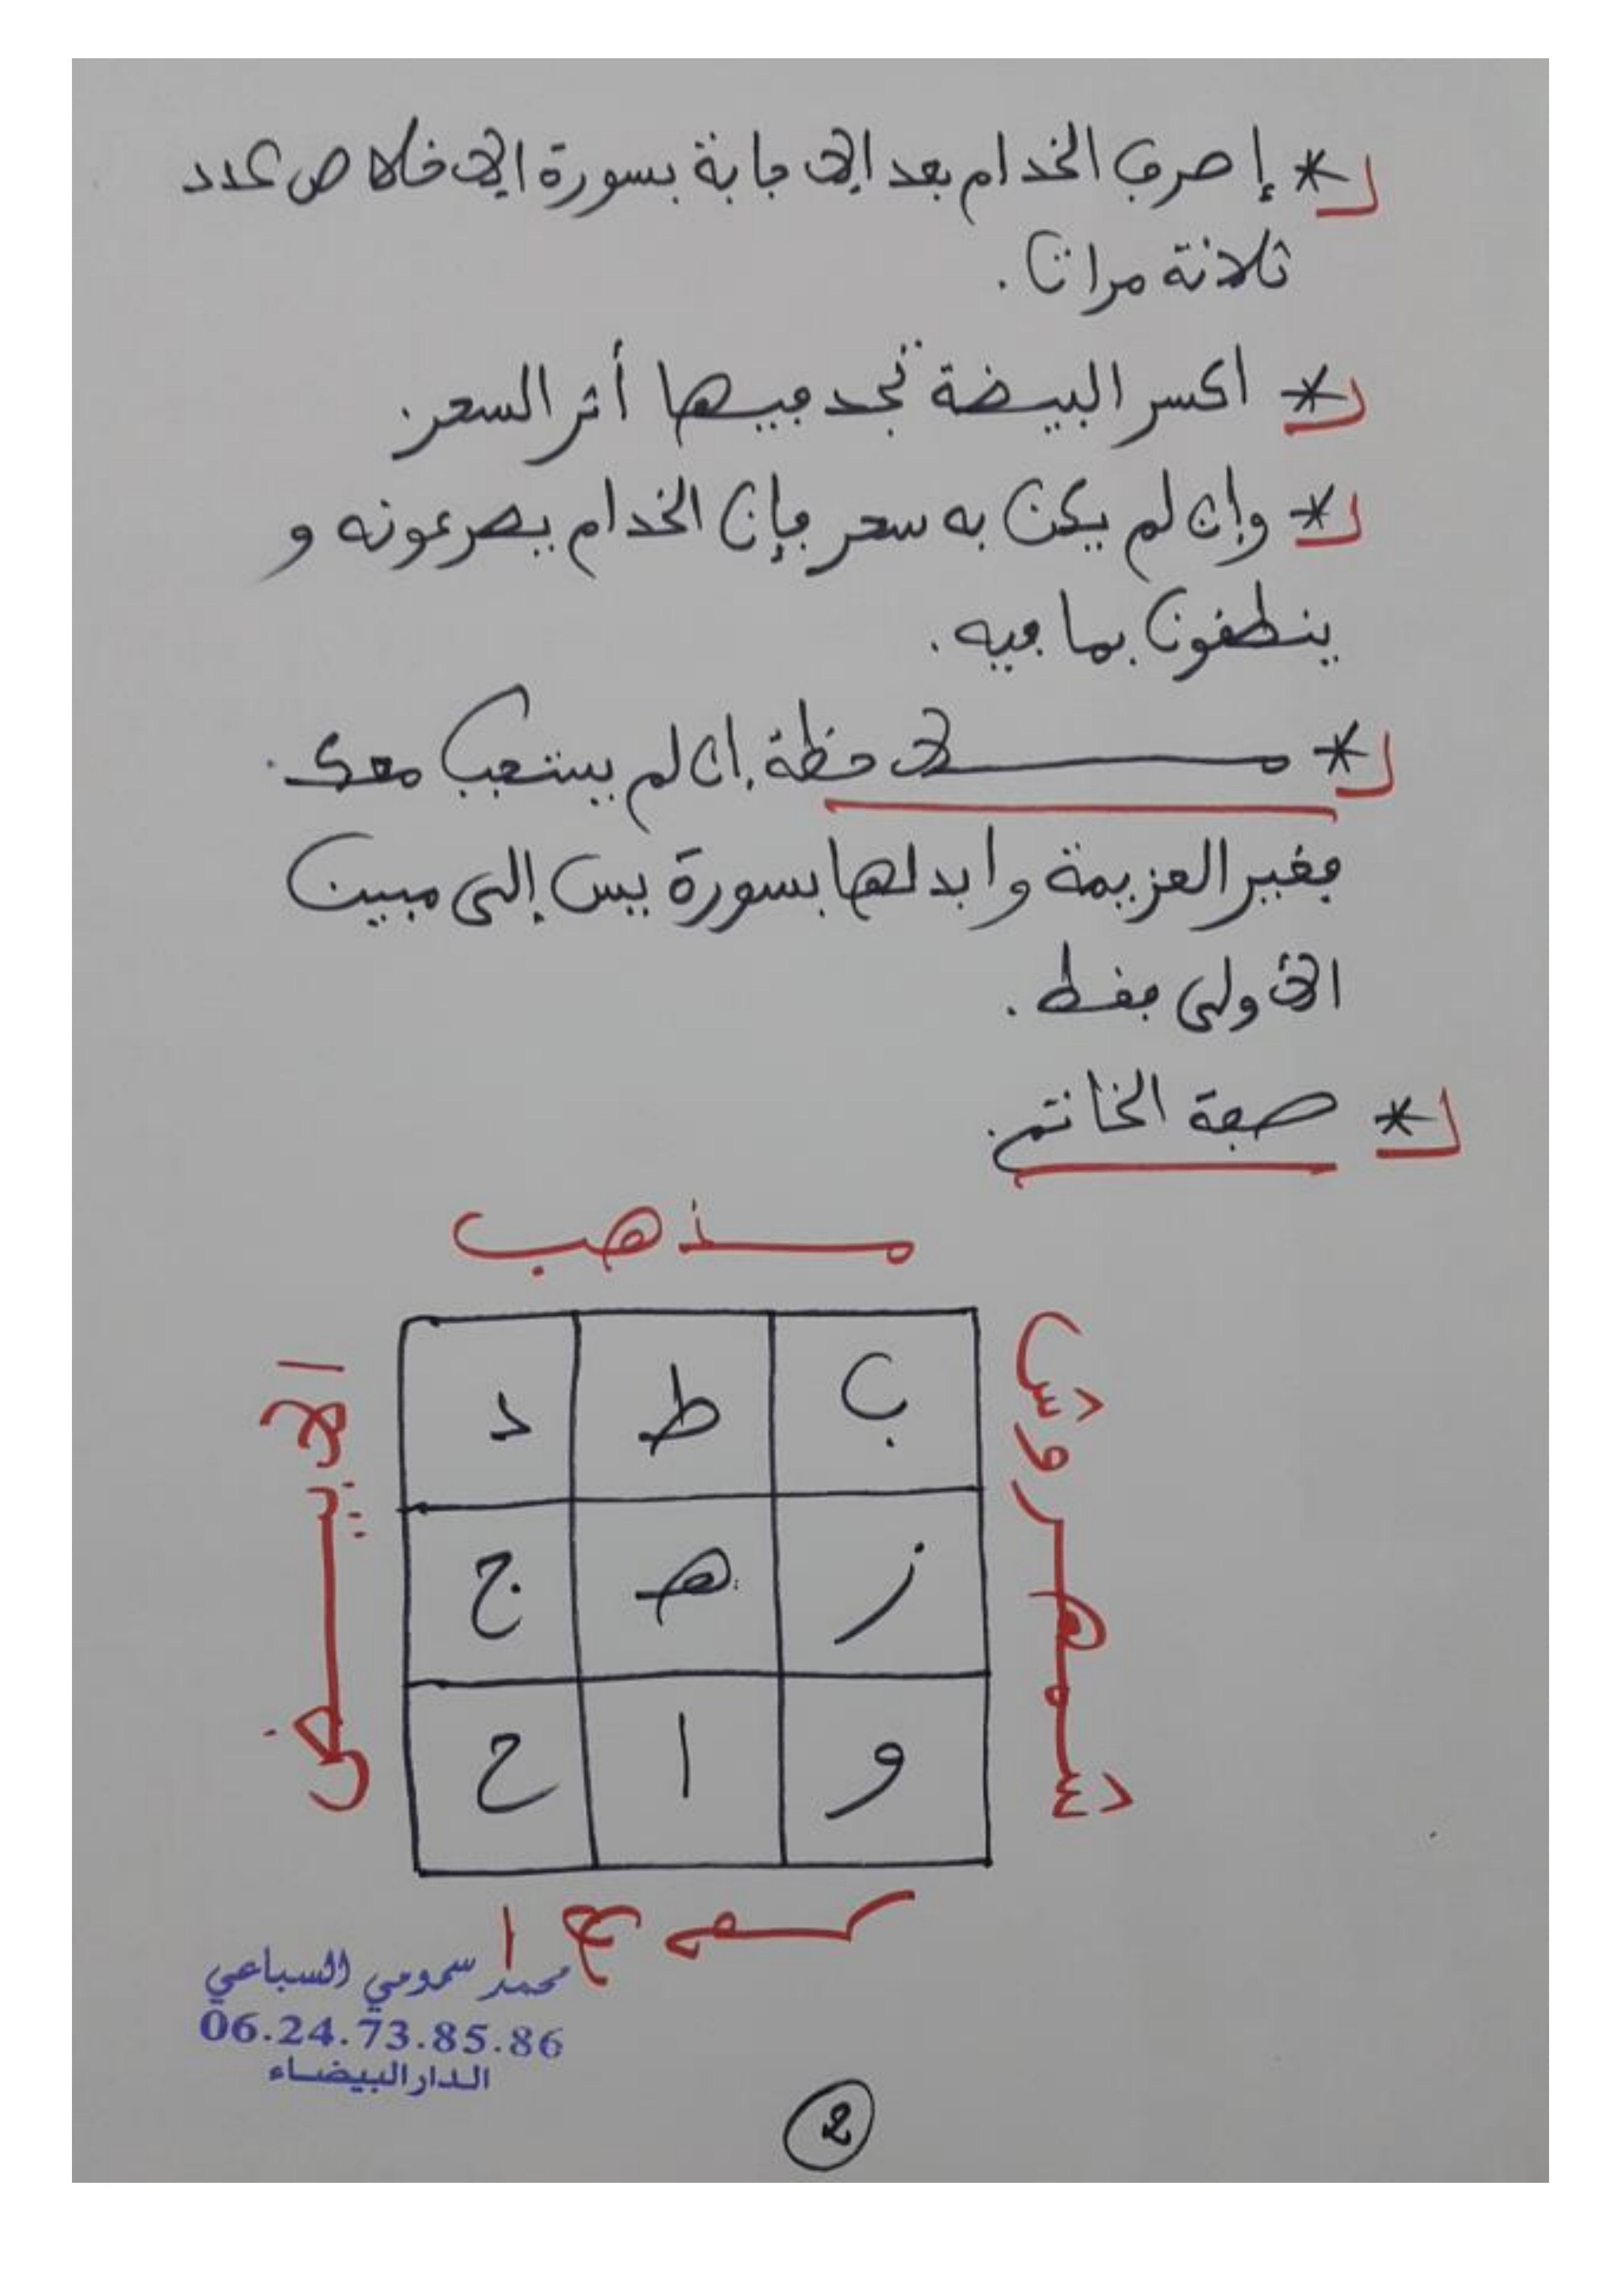 * إصرف الخدام بعد الاجابة بسورة الاخلاص عدد
ثلاثة مرات.
* اكسر البيضة تجد فيها أثر السحر.
* وإن لم يكن به سحر فإن الخدام يصرعونه و
ينطفون بما فيه.
* ملاحظة. ان لم يستجب معك.
فغير العزيمة وابدلها بسورة يس إلى مبين
الاولى فقط.
* صفة الخاتم.
مذهب
ب ط د
ز هـ ج
و ا ح
محمد سمومي السباعي
06.24.73.85.86
الدار البيضاء
2